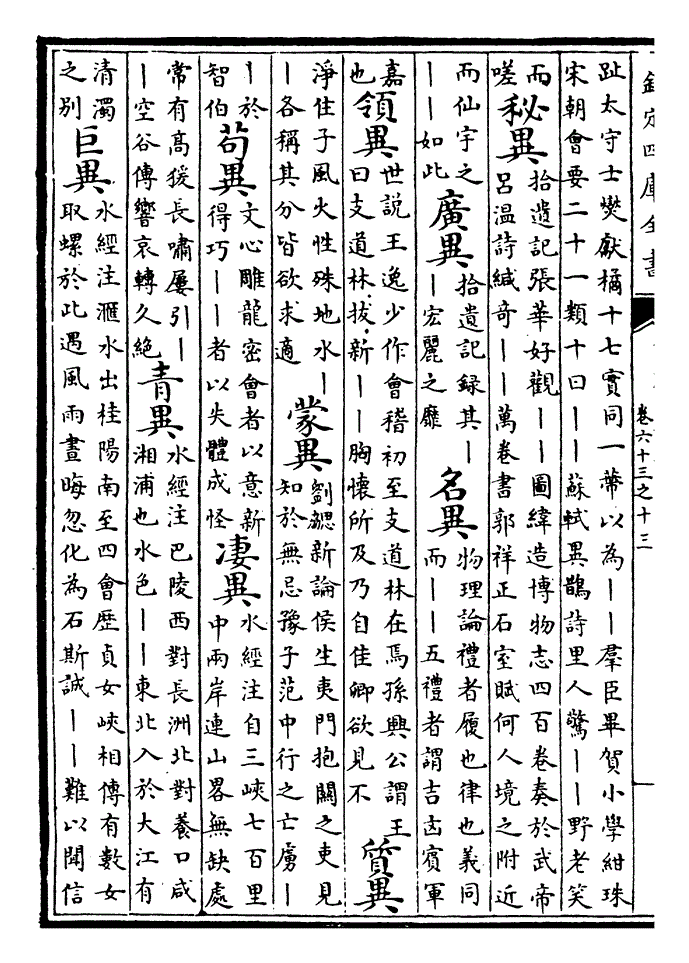 欽定四庫全書
卷六十三之十三
趾太守士燮獻橘十七實同一蔕以為——羣臣畢賀小學紺珠
宋朝會要二十一類十曰——蘇軾異鵲詩里人驚——野老笑
而
嗟
秘異
拾遺記張華好觀——圖緯造博物志四百卷奏於武帝
吕溫詩緘奇——萬卷書郭祥正石室賦何人境之附近
而仙宇之
——如此
廣異
拾遺記録其—
—宏麗之靡
名異
物理論禮者履也律也義同
而——五禮者謂吉凶賓軍
嘉
也
領異
世説王逸少作會稽初至支道林在焉孫興公謂王
曰支道林拔新——胸懷所及乃自佳卿欲見不
質異
淨住子風火性殊地水—
—各稱其分皆欲求適
蒙異
劉勰新論侯生夷門抱關之吏見
知於無忌豫子范中行之亡虜—
—於
智伯
苟異
文心雕龍密會者以意新
得巧——者以失體成怪
凄異
水經注自三峽七百里
中兩岸連山畧無缺處
常有高猨長嘯屢引—
—空谷傳響哀轉久絶
青異
水經注巴陵西對長洲北對養口咸
湘浦也水色——東北入於大江有
清濁
之别
巨異
水經注滙水出桂陽南至四會歴貞女峽相傳有數女
取螺於此遇風雨晝晦忽化為石斯誠——難以聞信